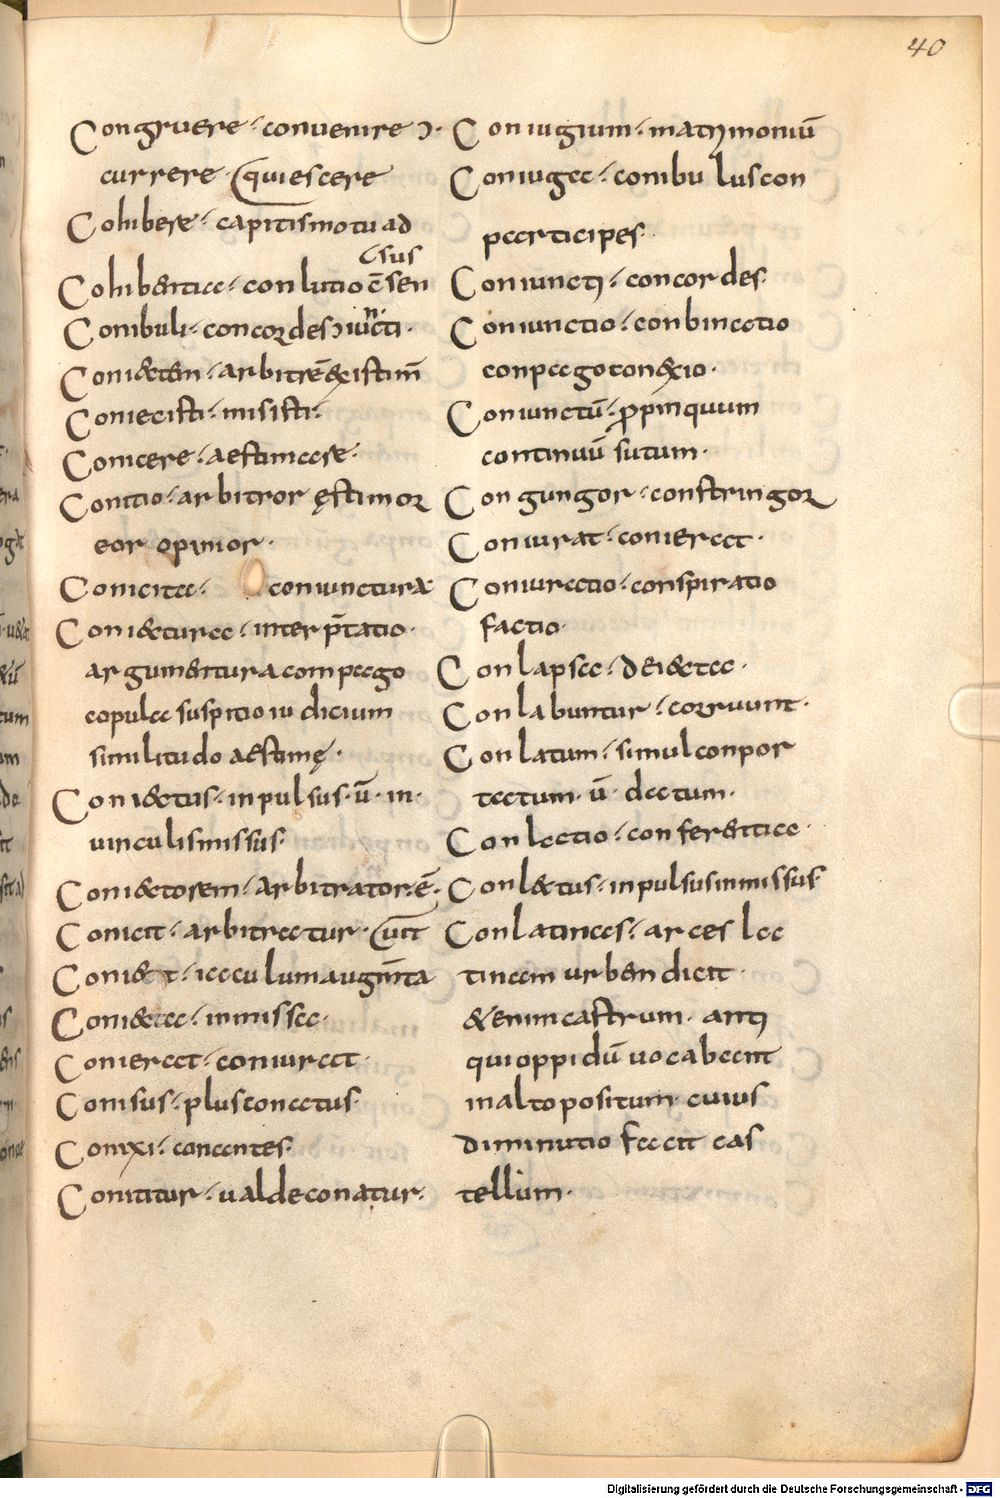 40
Congruere · convenire ɔ·
currere · quiescere
Cohibere · capitis motu ad
sus
Cohibentia · conlutio ē sen
Conibuli · concordes ɔ iuncti ·
Coniectem · arbitrē & existim̄
Coniecisti · misisti ·
Conicere · aestimare ·
Conitio · arbitror ęstimor
eor opinor ·
Conicitca · coniunctura
Coniectura · interp̄tatio ·
argumentura compago
copula suspitio iudicium
similitudo aestimę ·
Coniectus · inpulsus · ū · in ·
uinculis missus ·
Coniectorem · arbitrator · ē ·
Coniecit · arbitratur · uꝉ
Coniect · iaculum augm̄ta
Coniecta · inmissa ·
Conierat · coniurat ·
Conisus · plus conatus ·
Conixi · conantes ·
Conititur · ualde conatur ·
Coniugium · matrimoniū
Coniuga · conibulus con
participes ·
Coniuncti · concordes ·
Coniunctio · conbinatio
conpago con&xio ·
Coniunctū · ꝓpinquum
continuū sutum ·
Congungor · constringor
Coniurat · conierat ·
Coniuratio · conspiratio
factio ·
Conlapsa · deiecta ·
Conlabuntur · corruunt ·
Conlatum · simul conpor
tatum · ū · datum ·
Conlatio · conferentia ·
Conl&tus · inpulsus inmissus ·
Conlatinas · arces la
tinam urbem dicit ·
& enim castrum · anti
qui oppidū uocabant
in alto positum · cuius
diminutio facit cas
tellum ·
Digitalisierung gefördert durch die Deutsche Forschungsgemeinschaft · DFG